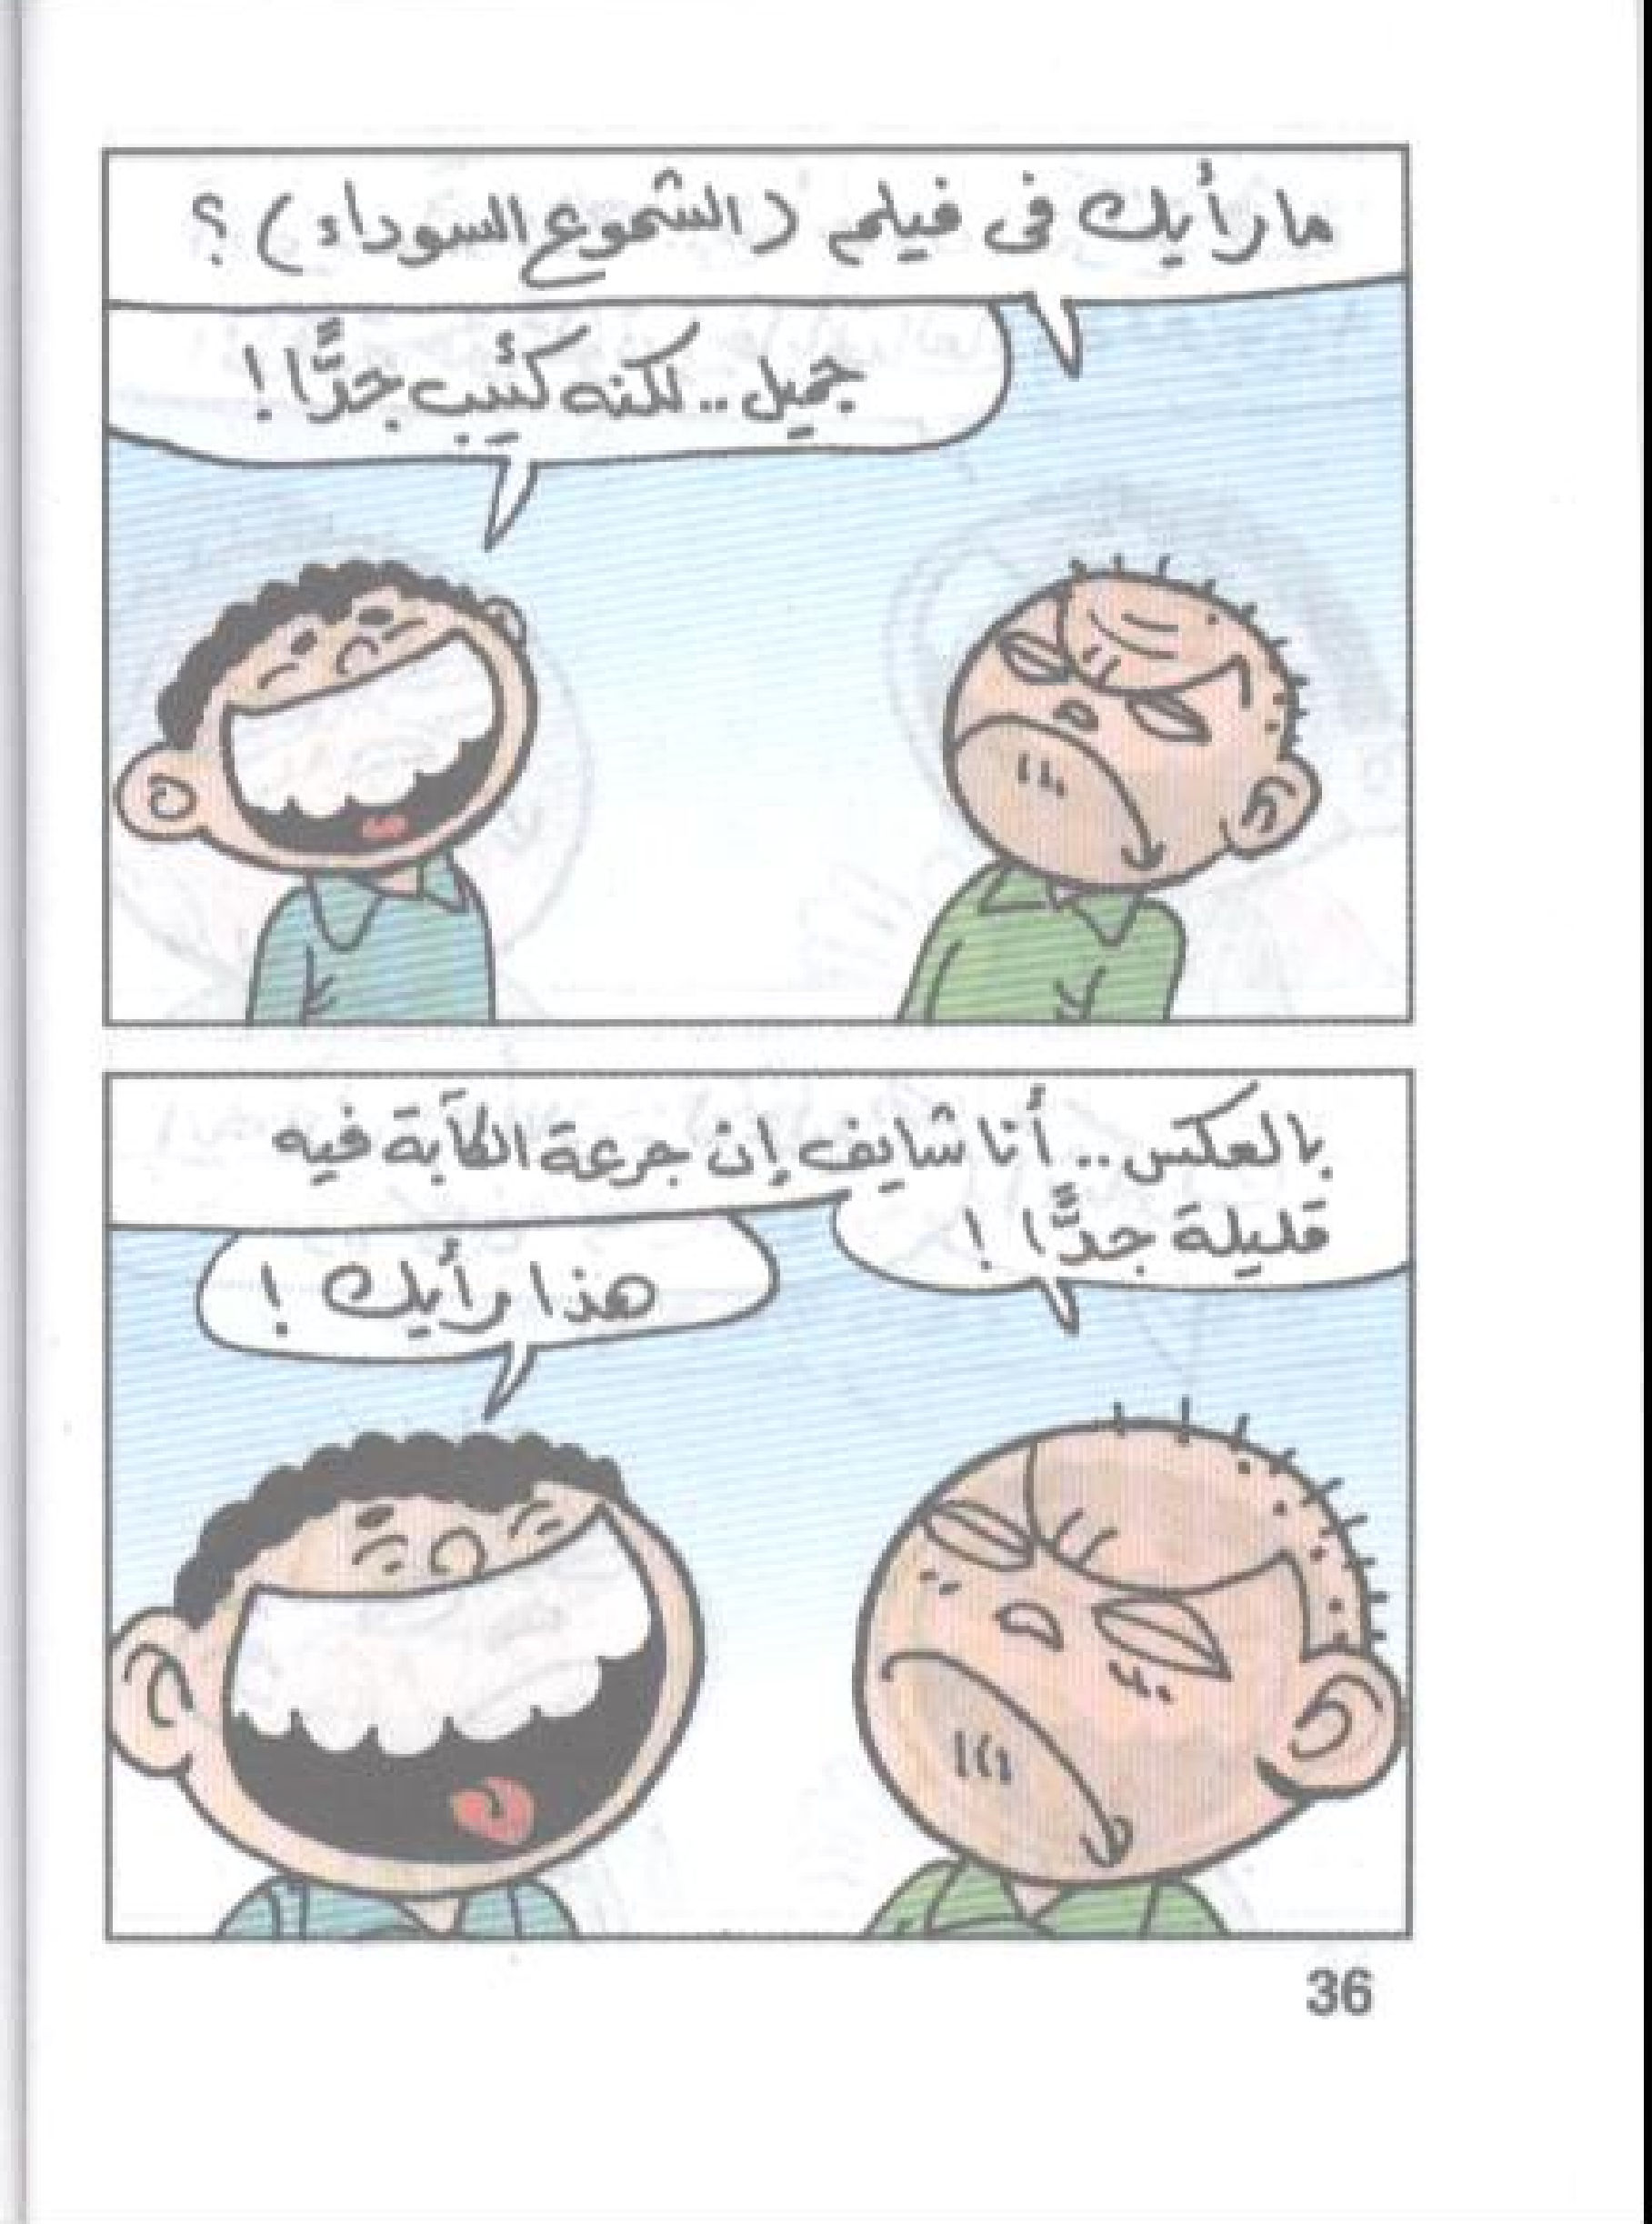 ما رأيك فى فيلم (الشموع السوداء) ؟
جميل .. لكنه كئيب جدًّا !
بالعكس .. أنا شايف إن جرعة الكآبة فيه
قليلة جدًّا !
هذا رأيك !
36